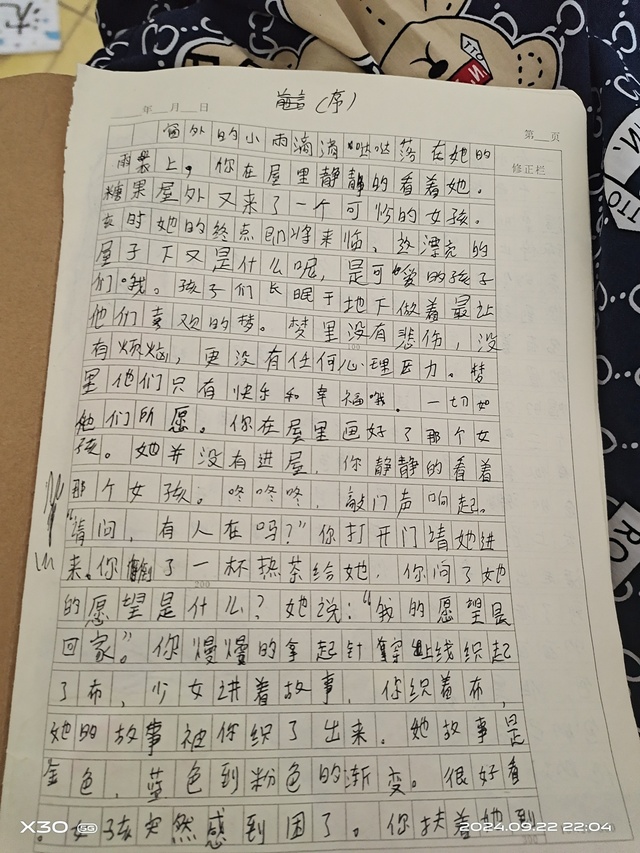 前言（序）
年 月 日
第 页
修正栏
窗外的小雨滴滴哒哒落在她的
雨裳上。你在屋里静静的看着她。
糖果屋外又来了一个可怜的女孩。
夜时她的终点即将来临，这漂亮的
屋子下又是什么呢，是可爱的孩子
们哦。孩子们长眠于地下做着最让
他们喜欢的梦。梦里没有悲伤，没
有烦恼，更没有任何心理压力。梦
里他们只有快乐和幸福哦。一切如
他们所愿。你在屋里画好了那个女
孩。她并没有进屋，你静静的看着
那个女孩。咚咚咚，敲门声响起。
“请问，有人在吗？”你打开门请她进
来。你倒了一杯热茶给她，你问了她
的愿望是什么？她说：“我的愿望是
回家”。你慢慢的拿起针穿上线织起
了布，少女讲着故事，你织着布，
她的故事被你织了出来。她故事是
金色，蓝色到粉色的渐变。很好看
。女孩突然感到困了。你扶着她到
100
200
X30 5G
2024.09.22 22:04
TTO
RO